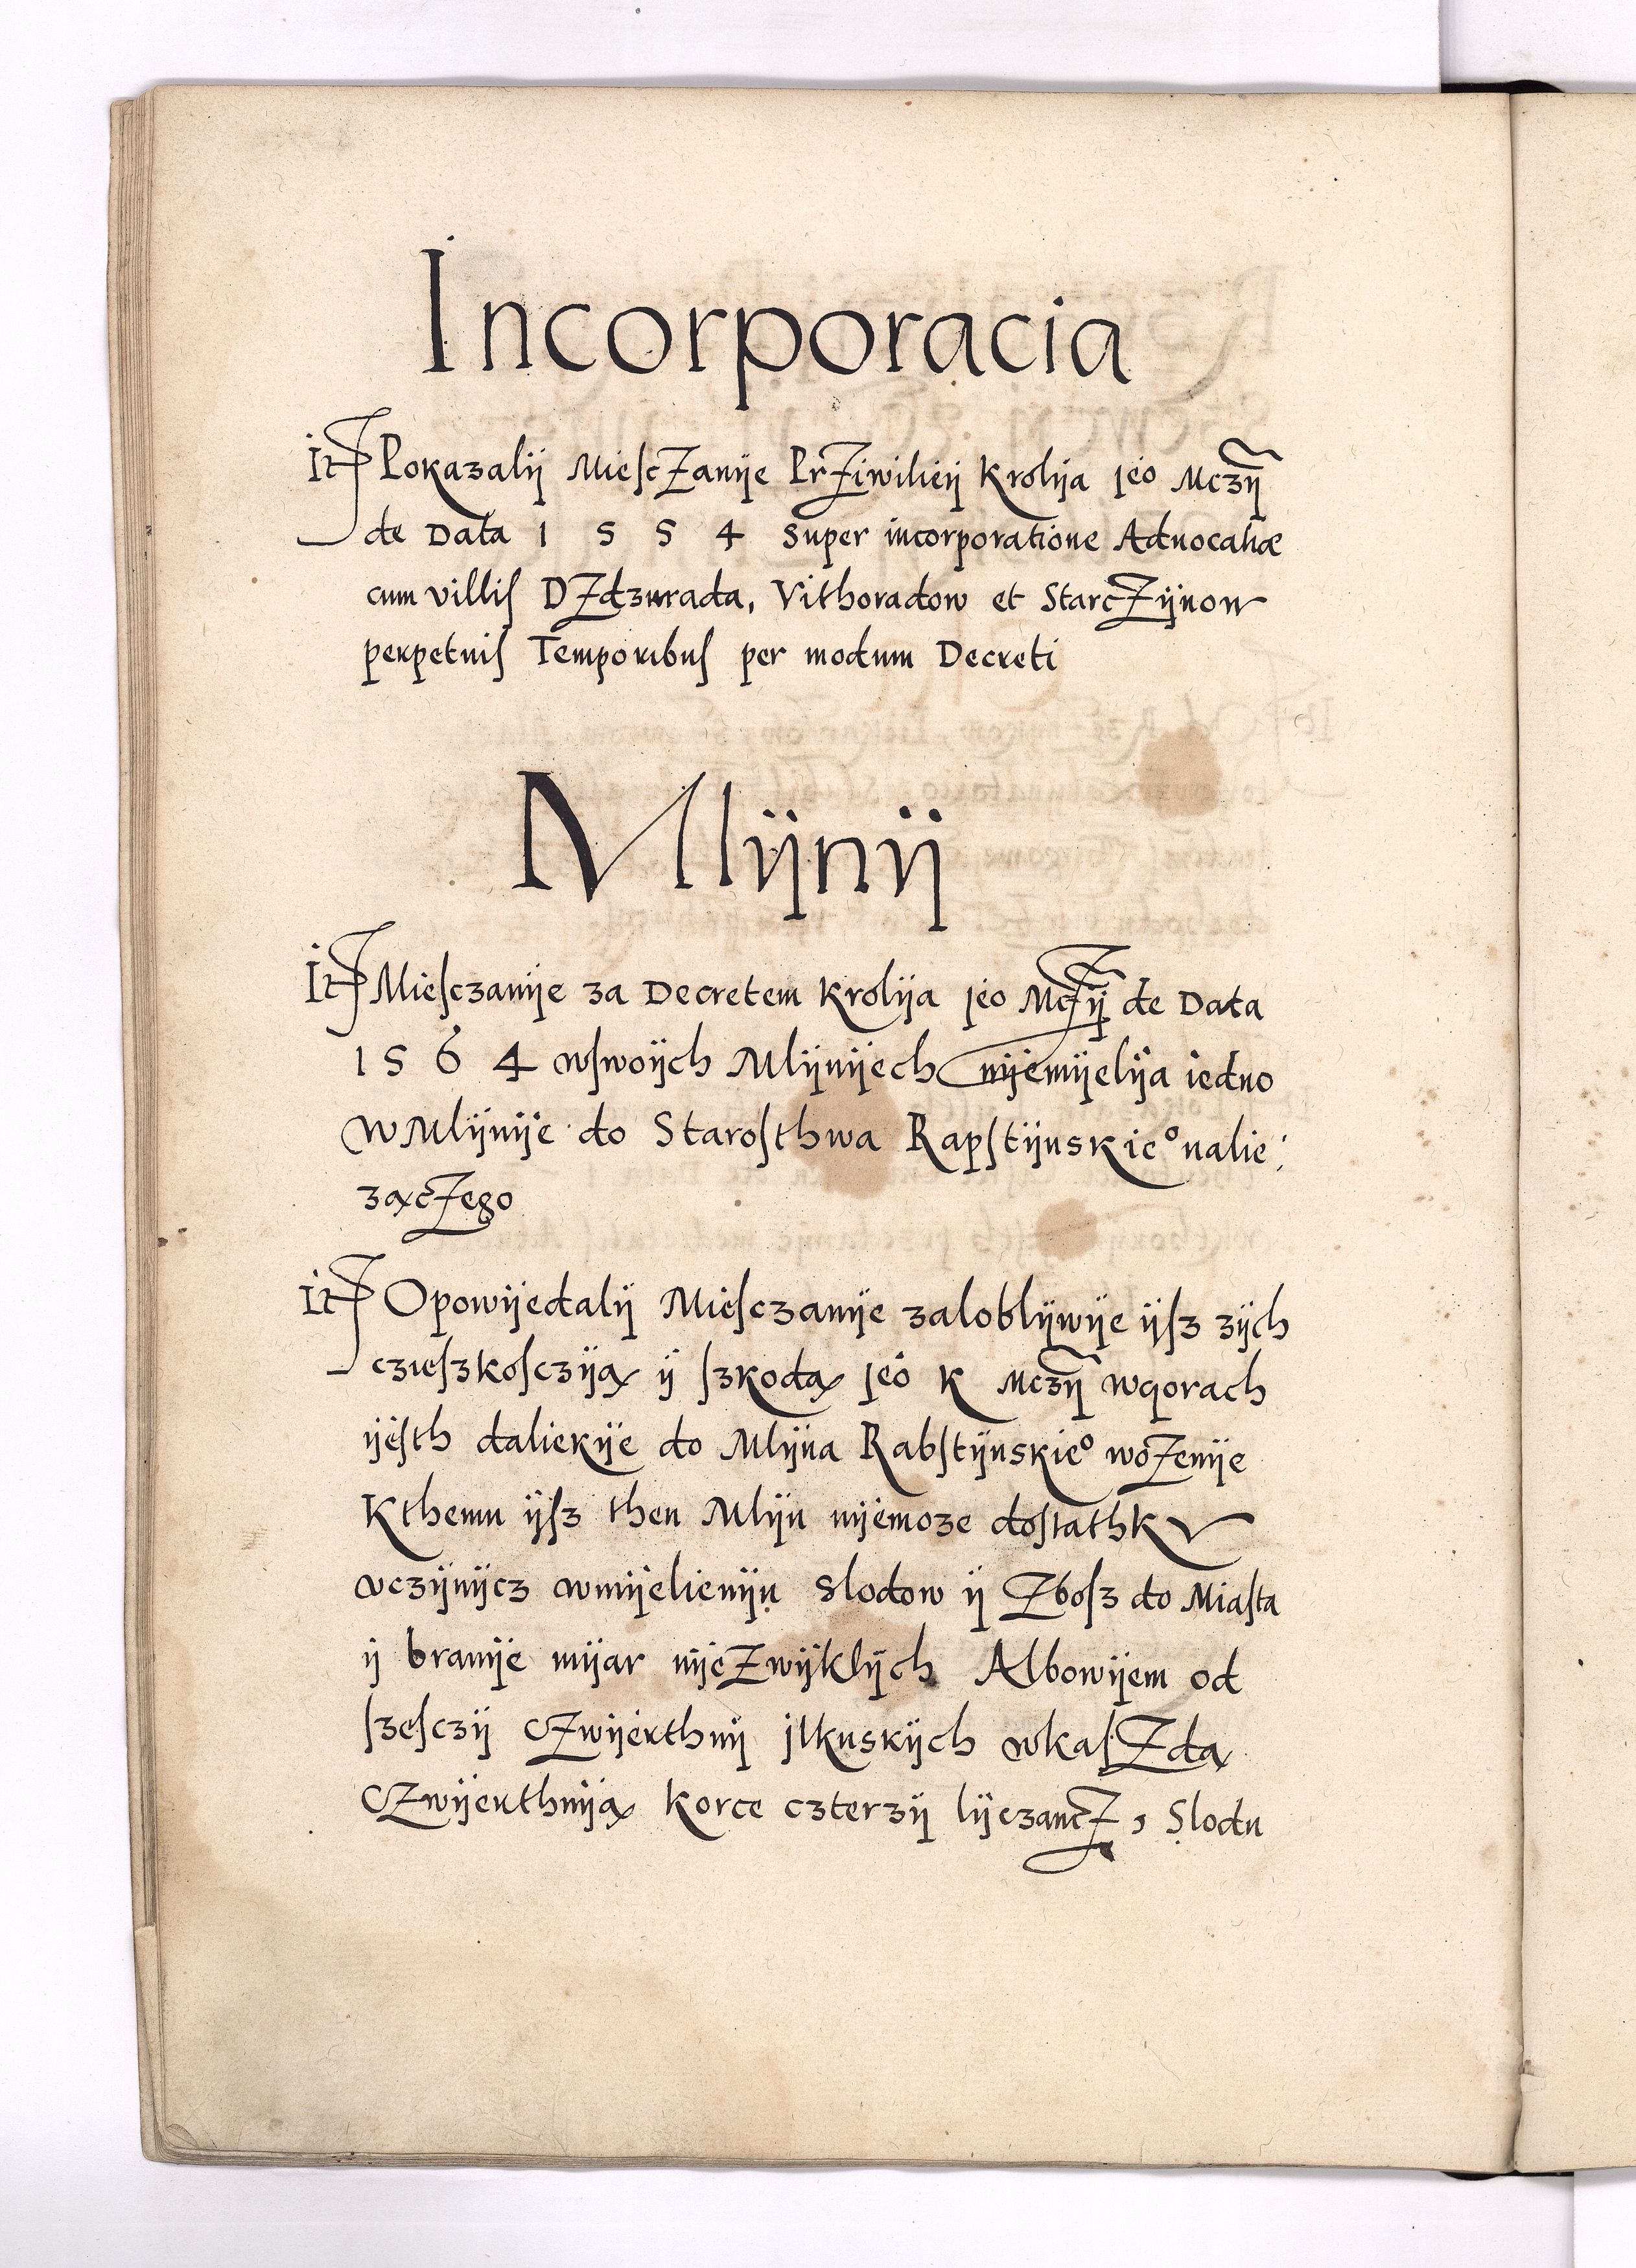 Incorporacia
It Pokazalÿ MieſcZanÿe PrZiwilieÿ Krolÿa jeo Mczÿ
de Data 1 5 5 4 Super incorporatione Aduocatiæ
cum villiſ DZdzurada, Vithoradow et StarcZÿnow
perpetuiſ Temporibuſ per modum Decreti
Mlÿnÿ
It Mieſczanÿe za Decretem Krolÿa jeo McZÿ de Data
1 5 6 4 wſwoÿch Mlÿnÿech nÿemÿelÿa iedno
W Mlÿnÿe do Staroſthwa Rapſtÿnskieº nalie:
zaxcZego
It Opowÿedalÿ Mieſczanÿe zaloblÿwÿe ÿſz zÿch
czieſzkoſczÿą ÿ ſzkodą jeo K Mczÿ wgorach
ÿeſth daliekÿe do Mlÿna Rabſtÿnskieº woZenÿe
Kthemu ÿſz then Mlÿn nÿemoze doſtathkV
vczÿnÿcz wmÿelienÿu Slodow ÿ Zboſz do Miaſta
ÿ branÿe mÿar nÿeZwÿklÿch Albowÿem od
ſzeſczÿ CZwÿerthnÿ jlkuskÿch wkaſZdą
CZwÿerthnÿą Korce czterzÿ lÿczancZ, Slodu